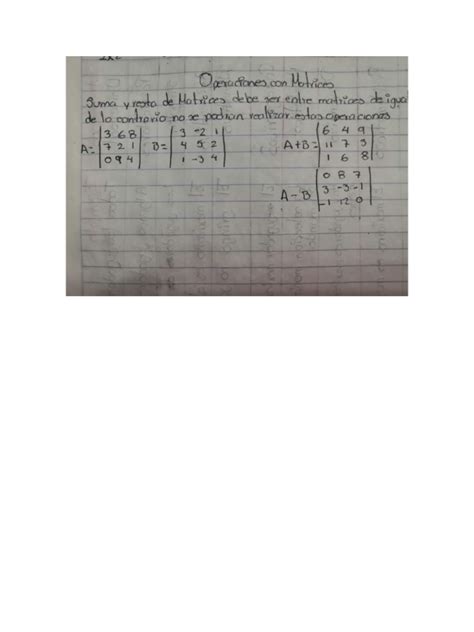 2x2
Operaciones con Matrices
Suma y resta de Matrices debe ser entre matrices de igual
de lo contrario no se podran realizar estas operaciones
A= |3 6 8| B= |3 -2 1| A+B= |6 4 9|
|7 2 1| |4 5 2| |11 7 3|
|0 9 4| |1 -3 4| |1 6 8|
A-B |0 8 7|
|3 -3 -1|
|-1 12 0|